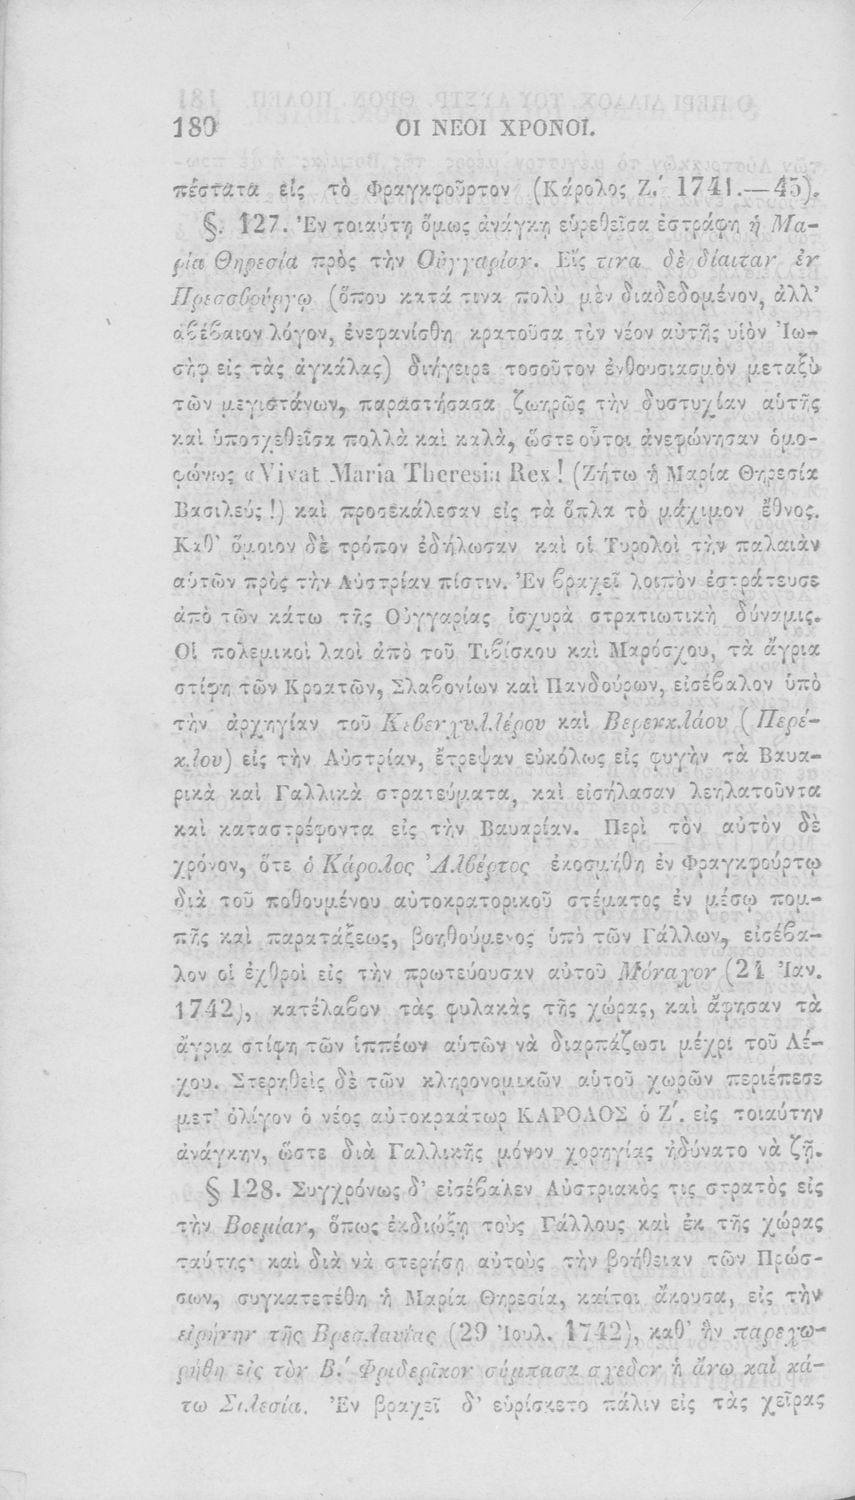 180 ΟΙ ΝΕΟΙ ΧΡΟΝΟΙ.
πέστατα εἰς τὸ Φραγκφοῦρτον (Κάρολος Ζ.΄ 1741.—45).
§. 127. Ἐν τοιαύτῃ ὅμως ἀνάγκῃ εὑρεθεῖσα ἐστράφη ἡ Μα-
ρία Θηρεσία πρὸς τὴν Οὐγγαρίαν. Εἴς τινα δὲ δίαιταν ἐν
Πρεσσβούργῳ (ὅπου κατά τινα πολὺ μὲν διαδεδομένον, ἀλλ’
ἀβέβαιον λόγον, ἐνεφανίσθη κρατοῦσα τὸν νέον αὑτῆς υἱὸν Ἰω-
σὴφ εἰς τὰς ἀγκάλας) διήγειρε τοσοῦτον ἐνθουσιασμὸν μεταξὺ
τῶν μεγιστάνων, παραστήσασα ζωηρῶς τὴν δυστυχίαν αὑτῆς
καὶ ὑποσχεθεῖσα πολλὰ καὶ καλὰ, ὥστε οὗτοι ἀνεφώνησαν ὁμο-
φώνως «Vivat Maria Theresia Rex! (Ζήτω ἡ Μαρία Θηρεσία
Βασιλεύς!) καὶ προσεκάλεσαν εἰς τὰ ὅπλα τὸ μάχιμον ἔθνος.
Καθ’ ὅμοιον δὲ τρόπον ἐδήλωσαν καὶ οἱ Τυρολοὶ τὴν παλαιὰν
αὑτῶν πρὸς τὴν Αὐστρίαν πίστιν. Ἐν βραχεῖ λοιπὸν ἐστράτευσε
ἀπὸ τῶν κάτω τῆς Οὐγγαρίας ἰσχυρὰ στρατιωτικὴ δύναμις.
Οἱ πολεμικοὶ λαοὶ ἀπὸ τοῦ Τιβίσκου καὶ Μαρόσχου, τὰ ἄγρια
στίφη τῶν Κροατῶν, Σλαβονίων καὶ Πανδούρων, εἰσέβαλον ὑπὸ
τὴν ἀρχηγίαν τοῦ Κεβενχυλλέρου καὶ Βερεκκλάου (Περέ-
κλου) εἰς τὴν Αὐστρίαν, ἔτρεψαν εὐκόλως εἰς φυγὴν τὰ Βαυα-
ρικὰ καὶ Γαλλικὰ στρατεύματα, καὶ εἰσήλασαν λεηλατοῦντα
καὶ καταστρέφοντα εἰς τὴν Βαυαρίαν. Περὶ τὸν αὐτὸν δὲ
χρόνον, ὅτε ὁ Κάρολος Ἀλβέρτος ἐκοσμήθη ἐν Φραγκφούρτῳ
διὰ τοῦ ποθουμένου αὐτοκρατορικοῦ στέματος ἐν μέσῳ πομ-
πῆς καὶ παρατάξεως, βοηθούμενος ὑπὸ τῶν Γάλλων, εἰσέβα-
λον οἱ ἐχθροὶ εἰς τὴν πρωτεύουσαν αὐτοῦ Μόναχον (24 Ἰαν.
1742), κατέλαβον τὰς φυλακὰς τῆς χώρας, καὶ ἄφησαν τὰ
ἄγρια στίφη τῶν ἱππέων αὑτῶν νὰ διαρπάζωσι μέχρι τοῦ Λέ-
χου. Στερηθεὶς δὲ τῶν κληρονομικῶν αὑτοῦ χωρῶν περιέπεσε
μετ’ ὀλίγον ὁ νέος αὐτοκραάτωρ ΚΑΡΟΛΟΣ ὁ Ζ΄. εἰς τοιαύτην
ἀνάγκην, ὥστε διὰ Γαλλικῆς μόνον χορηγίας ἠδύνατο νὰ ζῇ.
§ 128. Συγχρόνως δ’ εἰσέβαλεν Αὐστριακὸς τις στρατὸς εἰς
τὴν Βοεμίαν, ὅπως ἐκδιώξῃ τοὺς Γάλλους καὶ ἐκ τῆς χώρας
ταύτης· καὶ διὰ νὰ στερήσῃ αὐτοὺς τὴν βοήθειαν τῶν Πρώσ-
σων, συγκατετέθη ἡ Μαρία Θηρεσία, καίτοι ἄκουσα, εἰς τὴν
εἰρήνην τῆς Βρεσλαυΐας (29 Ἰουλ. 1742), καθ’ ἣν παρεχω-
ρήθη εἰς τὸν Β.΄ Φριδερῖκον σύμπασα σχεδὸν ἡ ἄνω καὶ κά-
τω Σιλεσία. Ἐν βραχεῖ δ’ εὑρίσκετο πάλιν εἰς τὰς χεῖρας